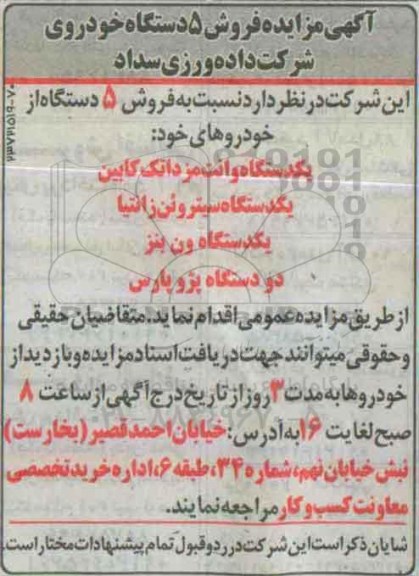 آگهی مزایده فروش ۵ دستگاه خودروی
شرکت داده ورزی سداد
این شرکت در نظر دارد نسبت به فروش ۵ دستگاه از
خودروهای خود:
یکدستگاه وانت مزدا تک کابین
یکدستگاه سیتروئن زانتیا
یکدستگاه ون بنز
دو دستگاه پژو پارس
از طریق مزایده عمومی اقدام نماید. متقاضیان حقیقی
و حقوقی میتوانند جهت دریافت اسناد مزایده و بازدید از
خودروها به مدت ۳ روز از تاریخ درج آگهی از ساعت ۸
صبح لغایت ۱۶ به آدرس: خیابان احمد قصیر (بخارست)
نبش خیابان نهم، شماره ۳۴، طبقه ۶، اداره خرید تخصصی
معاونت کسب و کار مراجعه نمایند.
شایان ذکر است این شرکت در رد و قبول تمام پیشنهادات مختار است.